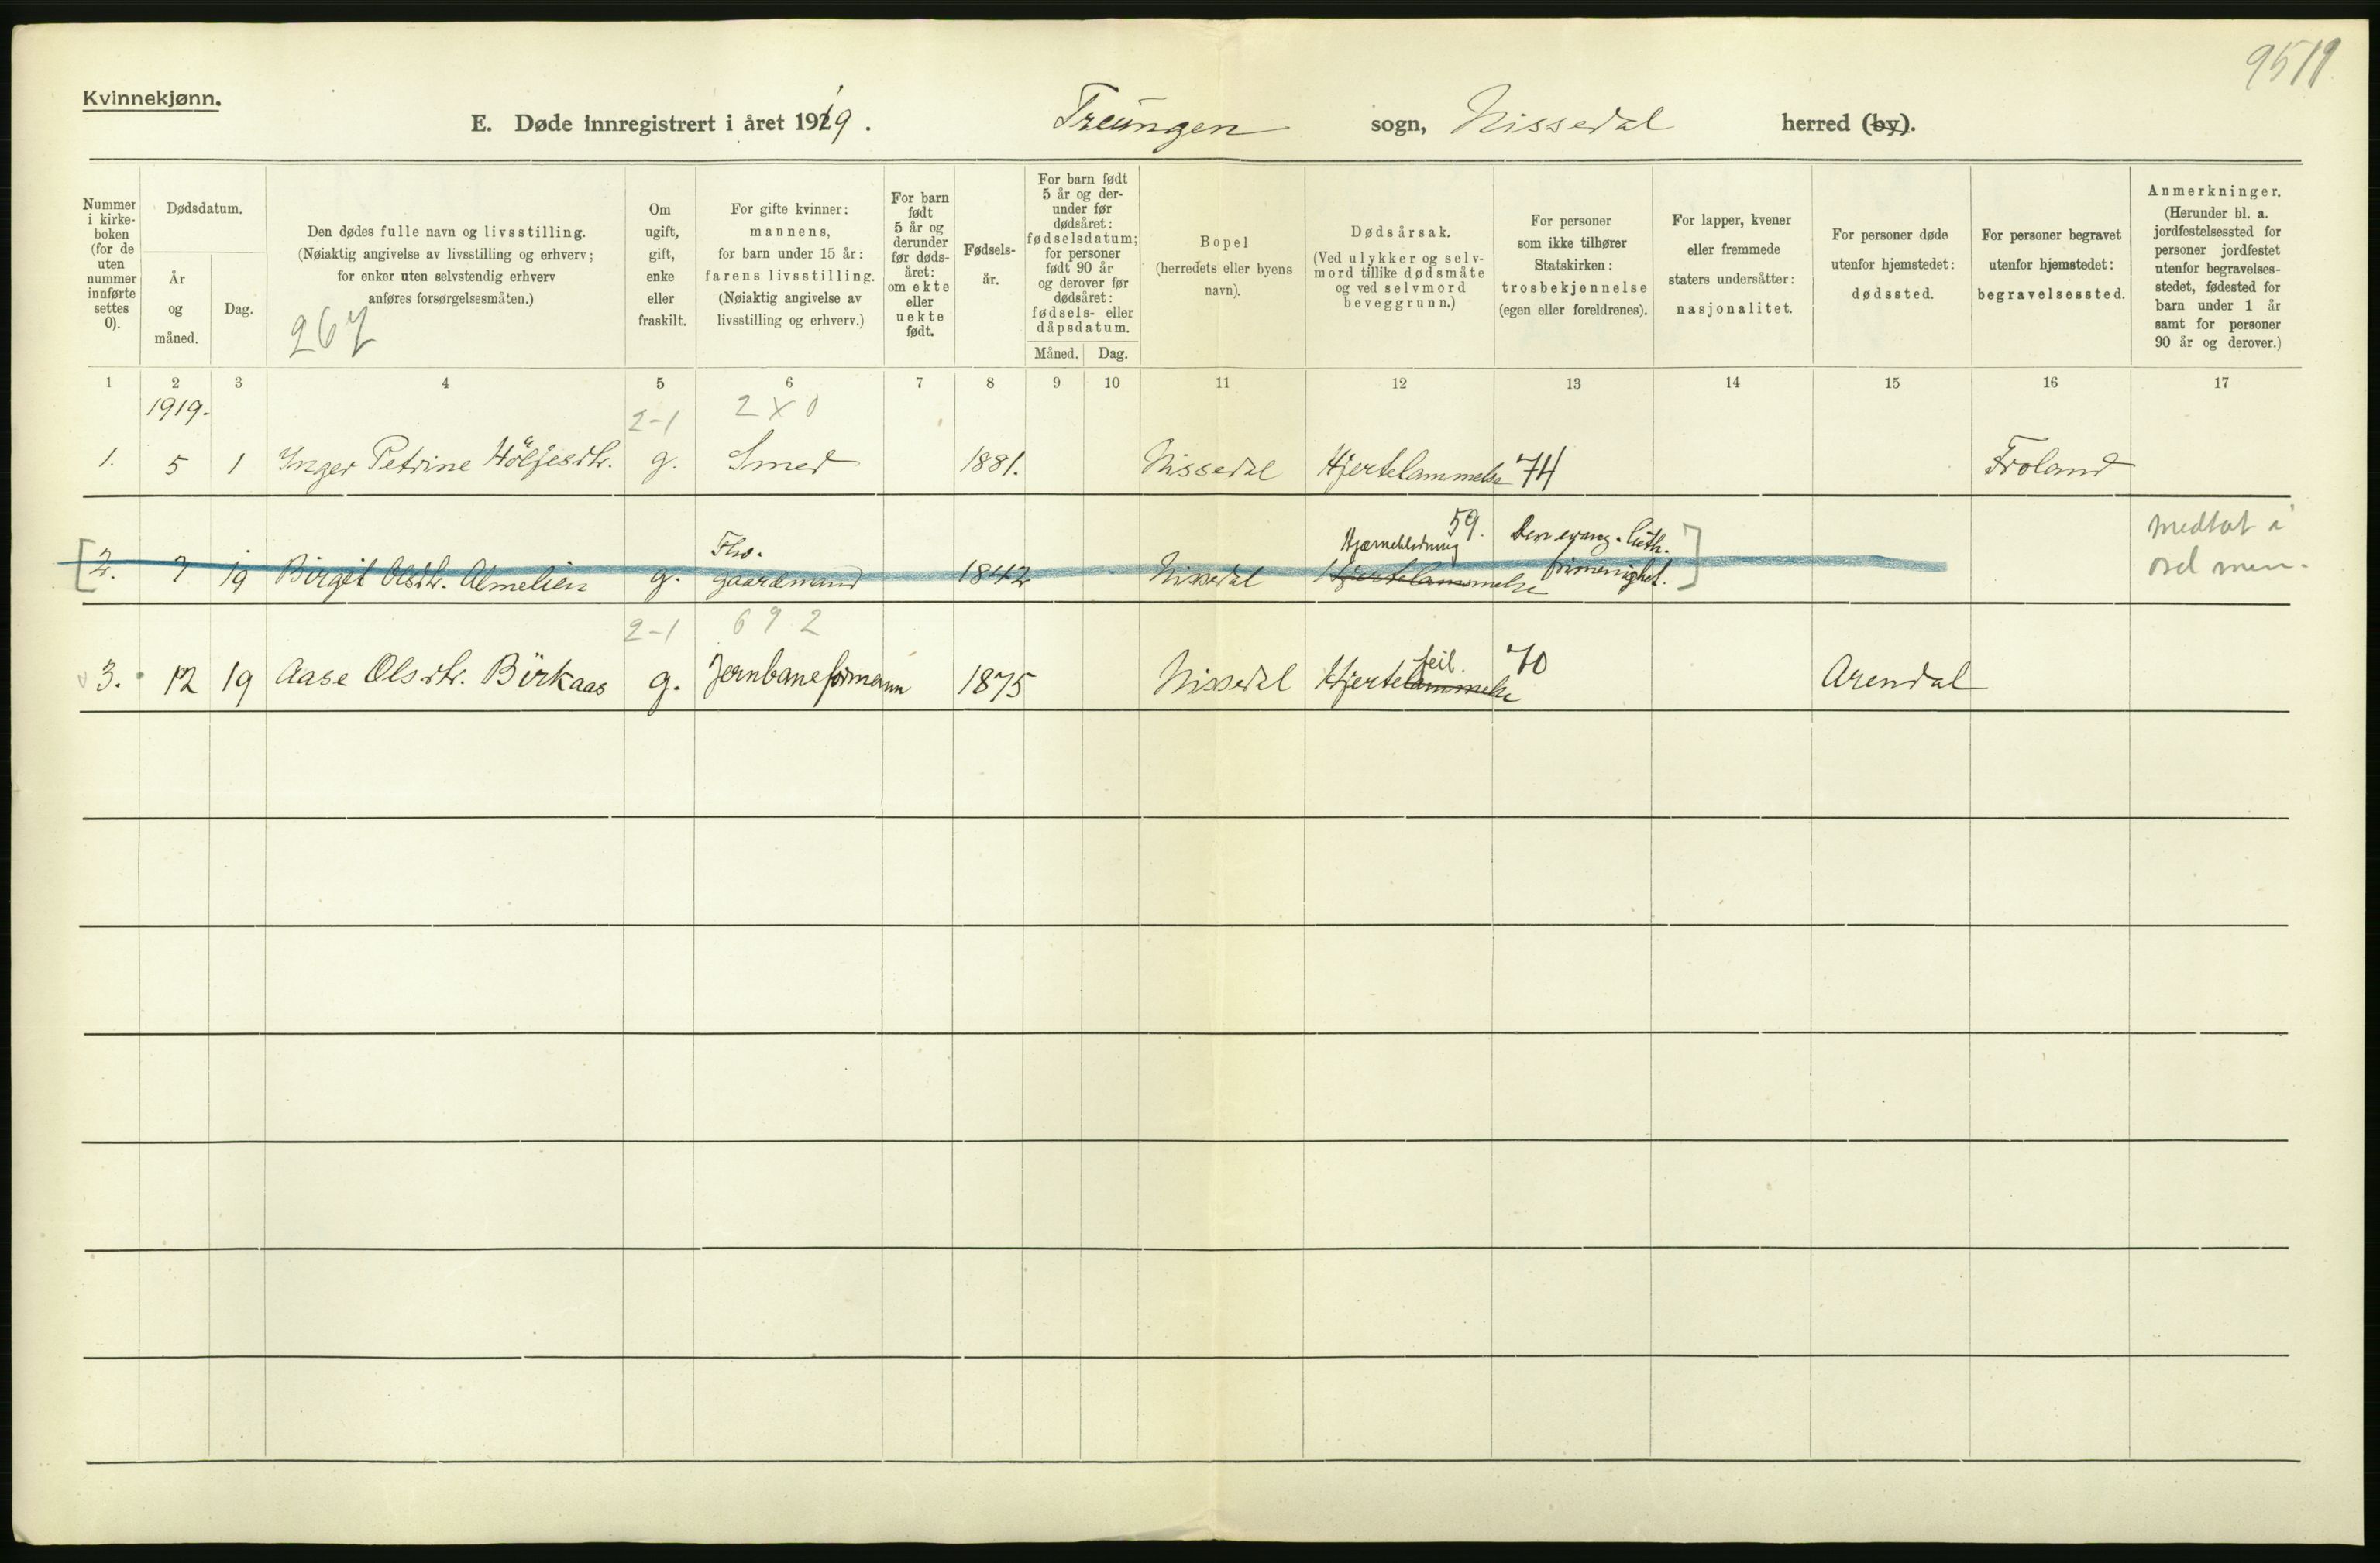 9511
Kvinnekjønn.
E. Døde innregistrert i året 1919. Treungen sogn, Nissedal herred (by).
Nummer i kirke- boken (for de uten nummer innførte settes 0).
Dødsdatum.
År og måned.
Dag.
Den dødes fulle navn og livsstilling.
(Nøiaktig angivelse av livsstilling og erhverv;
for enker uten selvstendig erhverv
anføres forsørgelsesmåten.)
267
Om ugift, gift, enke eller fraskilt.
For gifte kvinner:
mannens,
for barn under 15 år:
farens livsstilling.
(Nøiaktig angivelse av
livsstilling og erhverv.)
For barn født 5 år og derunder før døds- året: om ekte eller uekte født.
Fødsels- år.
For barn født 5 år og der- under før dødsåret: fødselsdatum; for personer født 90 år og derover før dødsåret: fødsels- eller dåpsdatum.
Måned. Dag.
Bopel
(herredets eller byens
navn).
Dødsårsak.
(Ved ulykker og selv-
mord tillike dødsmåte
og ved selvmord
beveggrunn.)
For personer
som ikke tilhører
Statskirken:
trosbekjennelse
(egen eller foreldrenes).
For lapper, kvener
eller fremmede
staters undersåtter:
nasjonalitet.
For personer døde
utenfor hjemstedet:
dødssted.
For personer begravet
utenfor hjemstedet:
begravelsessted.
Anmerkninger.
(Herunder bl. a.
jordfestelsessted for
personer jordfestet
utenfor begravelses-
stedet, fødested for
barn under 1 år
samt for personer
90 år og derover.)
1 2 3 4 5 6 7 8 9 10 11 12 13 14 15 16 17
1919. 2-1 2 X 0
1. 5 1 Inger Petrine Höljesdtr. g. Smed 1881. Nissedal Hjertelammelse 74 Froland
Fhv. Hjerneblødning 59. Den evang. luth. medtat i
[2. 7 19 Birgit Olsdtr. Almelien g. gaardmand 1842 Nissedal Hjertelammelse frimenighet.]
2-1 692
3. 12 19 Aase Olsdtr. Birkaas g. Jernbaneformann 1875 Nissedal Hjertelammelse feil. 70 Arendal